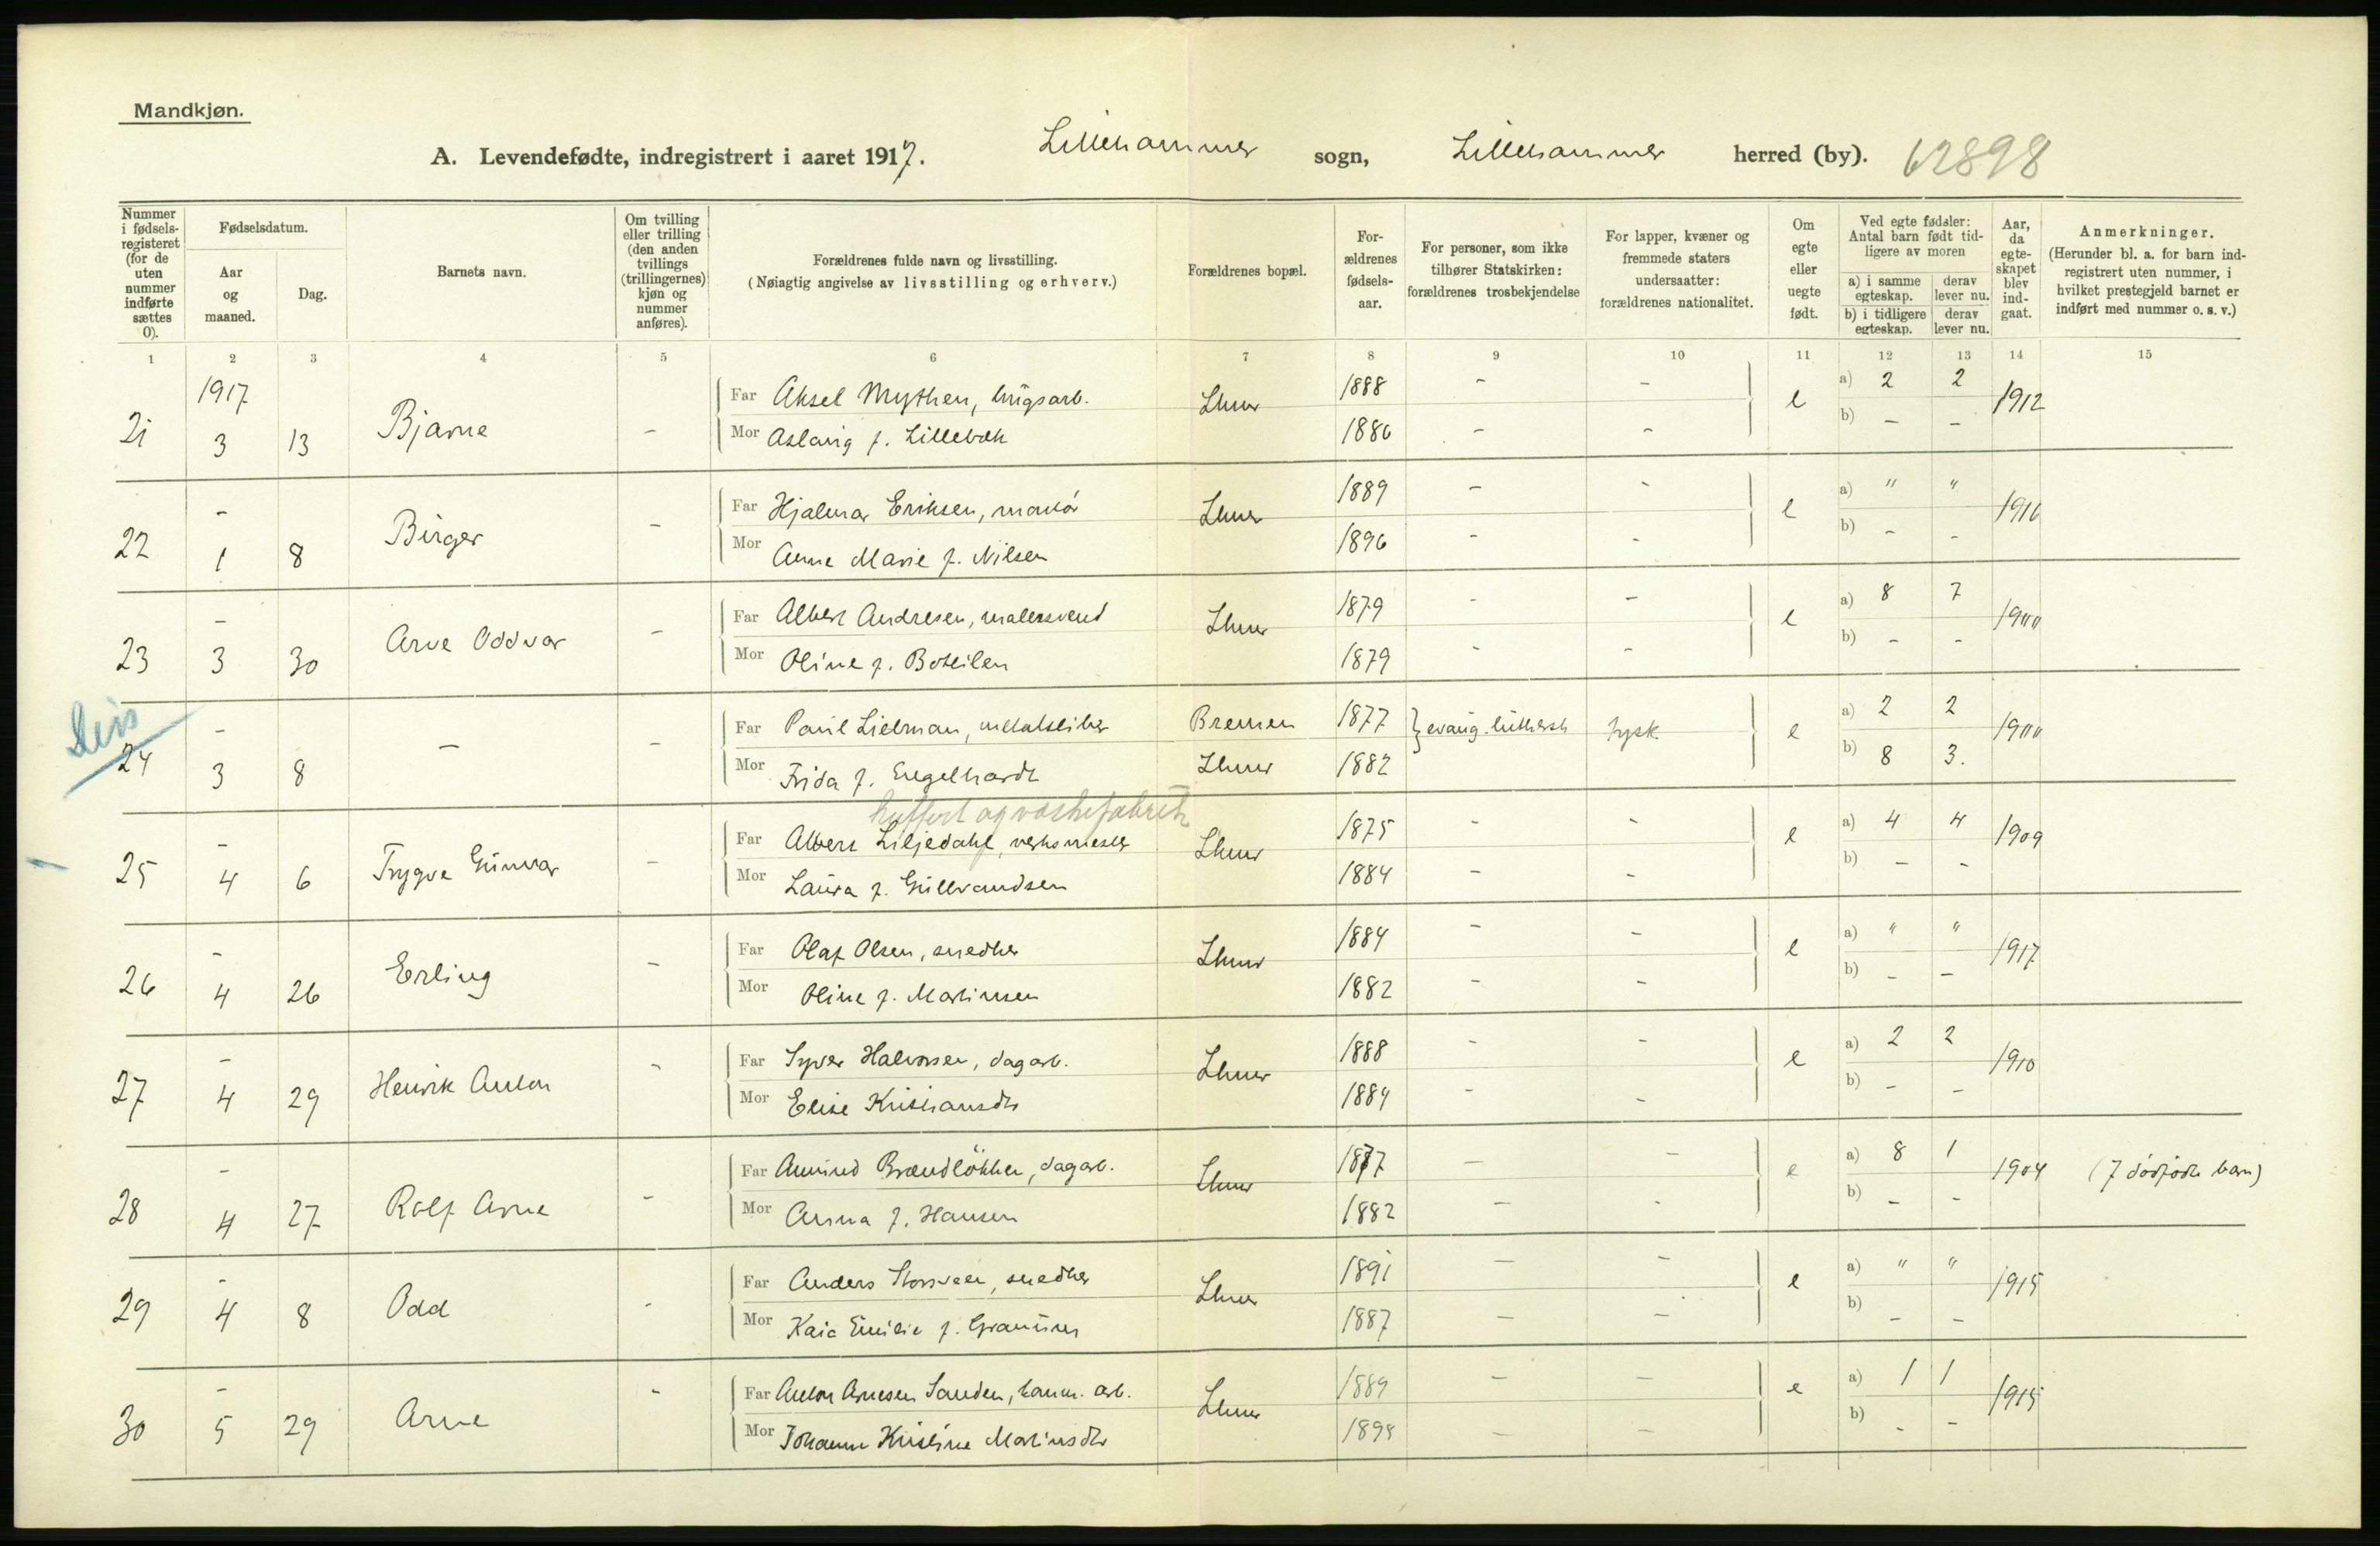 Mandkjøn.
A. Levendefødte, indregistrert i aaret 1917. Lillehammer sogn, Lillehammer herred (by). 62898
Nummer i fødselsregisteret (for de uten nummer indførte sættes 0).
Fødselsdatum.
Aar og maaned.
Dag.
Barnets navn.
Om tvilling eller trilling (den anden tvillings (trillingernes) kjøn og nummer anføres).
Forældrenes fulde navn og livsstilling.
(Nøiagtig angivelse av livsstilling og erhverv.)
Forældrenes bopæl.
Forældrenes fødselsaar.
For personer, som ikke tilhører Statskirken: forældrenes trosbekjendelse
For lapper, kvæner og fremmede staters undersaatter: forældrenes nationalitet.
Om egte eller uegte født.
Ved egte fødsler: Antal barn født tidligere av moren
a) i samme egteskap. derav lever nu.
b) i tidligere egteskap. derav lever nu.
Aar, da egteskapet blev indgaat.
Anmerkninger.
(Herunder bl. a. for barn indregistrert uten nummer, i hvilket prestegjeld barnet er indført med nummer o. s. v.)
1 2 3 4 5 6 7 8 9 10 11 12 13 14 15
1917
21 3 13 Bjarne - Far Aksel Mythen, - - Lhmr 1888 e a) 2 2 1912
Mor Aslaug f. Lillebæk 1886 - - b) - -
22 - 1 8 Birger - Far Hjalmar Eriksen, Lhmr 1889 - - e a) " " 1916
Mor Anne Marie f. Nilsen 1896 - - b) - -
23 - 3 30 Arve Oddvar - Far Albert Andresen, malersvend Lhmr 1879 - - e a) 8 7 1900
Mor Oline f. Botilen 1879 - - b) - -
24 - 3 8 - - Far Paul Lielman, metalsliber Bremen 1877 } evang. luthersk tysk e a) 2 2 1900
Mor Frida f. Engelhardt Lhmr 1882 b) 8 3.
kuffert og væskefabrik
25 - 4 6 Trygve Gunvar - Far Albert Liljedahl, verksmester Lhmr 1875 - - e a) 4 4 1909
Mor Laura f. Gulbrandsen 1884 - - b) - -
26 - 4 26 Erling - Far Olaf Olsen, snedker Lhmr 1884 - - e a) " " 1917
Mor Oline f. Martinsen 1882 - - b) - -
27 - 4 29 Henrik Anton - Far Syver Halvorsen, dagarb. Lhmr 1888 - - e a) 2 2 1910
Mor Elise Kristiansdtr 1884 - - b) - -
28 - 4 27 Rolf Arne - Far Amund Brændløkken, dagarb. Lhmr 1877 - - e a) 8 1 1904 (7 dødfødte barn)
Mor Anna f. Hansen 1882 - - b) - -
29 - 4 8 Odd - Far Anders Storsveen, snedker Lhmr 1891 - - e a) " " 1915
Mor Kaia Emilie f. 1887 - - b) - -
30 - 5 29 Arne - Far Anton Arnesen Sanden, arb. Lhmr 1889 - - e a) 1 1 1915
Mor Johanne Kristine Martinsdtr 1898 - - b) - -